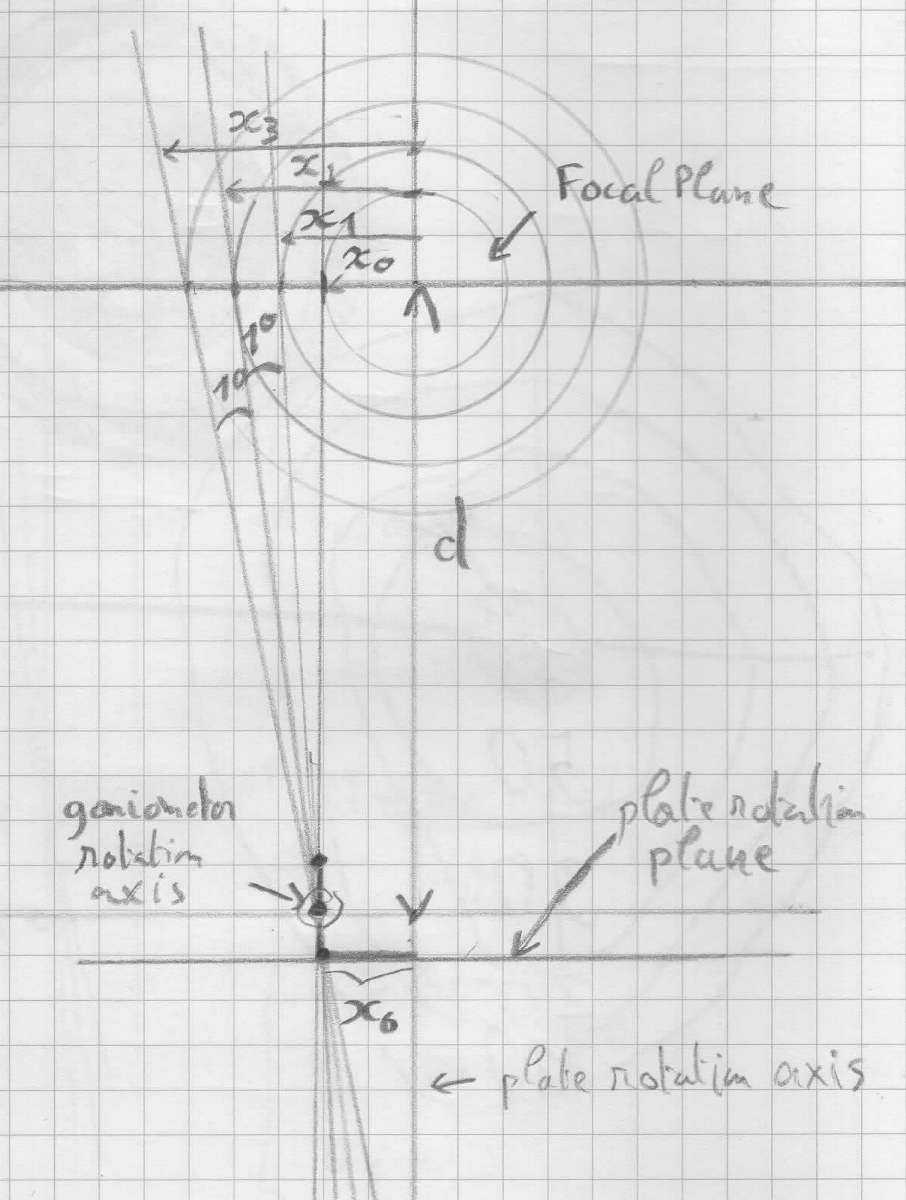 x3
x2
Focal Plane
x1
x0
1°
1°
d
goniometer
rotation
axis
plate rotation
plane
x6
plate rotation axis